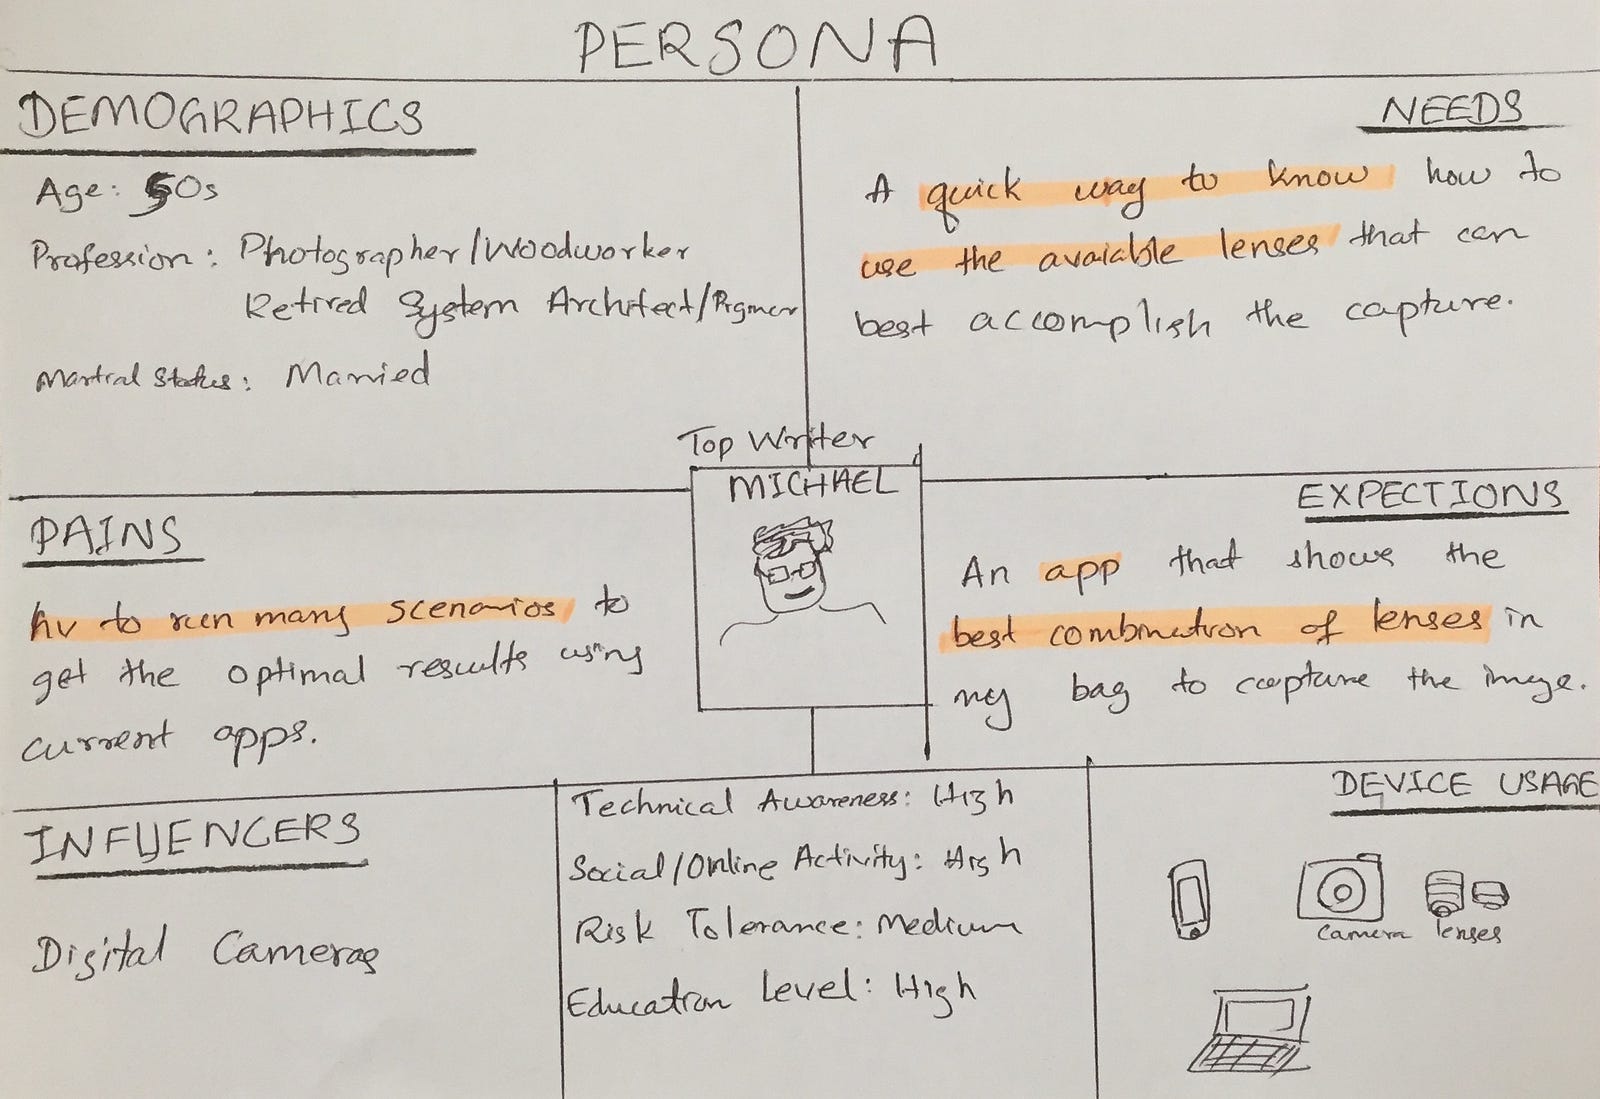 PERSONA
DEMOGRAPHICS
Age: 50s
Profession: Photographer/Woodworker
Retired System Architect/Prgmer
Martial Status: Married
NEEDS
A quick way to know how to
use the avaiable lenses that can
best accomplish the capture.
Top Writer
MICHAEL
PAINS
hv to run many scenarios to
get the optimal results using
current apps.
EXPECTIONS
An app that shows the
best combination of lenses in
my bag to capture the image.
INFLUENCERS
Digital Cameras
Technical Awareness: High
Social/Online Activity: High
Risk Tolerance: Medium
Education Level: High
DEVICE USAGE
Camera lenses